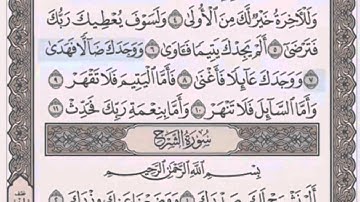 وَلَلْآخِرَةُ خَيْرٌ لَّكَ مِنَ الْأُولَىٰ ٤ وَلَسَوْفَ يُعْطِيكَ رَبُّكَ
فَتَرْضَىٰ ٥ أَلَمْ يَجِدْكَ يَتِيمًا فَآوَىٰ ٦ وَوَجَدَكَ ضَالًّا فَهَدَىٰ
٧ وَوَجَدَكَ عَائِلًا فَأَغْنَىٰ ٨ فَأَمَّا الْيَتِيمَ فَلَا تَقْهَرْ ٩
وَأَمَّا السَّائِلَ فَلَا تَنْهَرْ ١٠ وَأَمَّا بِنِعْمَةِ رَبِّكَ فَحَدِّثْ ١١
سُورَةُ الشَّرْحِ
بِسْمِ اللَّهِ الرَّحْمَٰنِ الرَّحِيمِ
أَلَمْ نَشْرَحْ لَكَ صَدْرَكَ ١ وَوَضَعْنَا عَنكَ وِزْرَكَ ٢